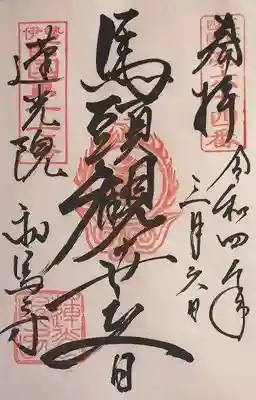 奉拝
令和四年
三月六日
馬頭観世音
蓮光院
初馬寺